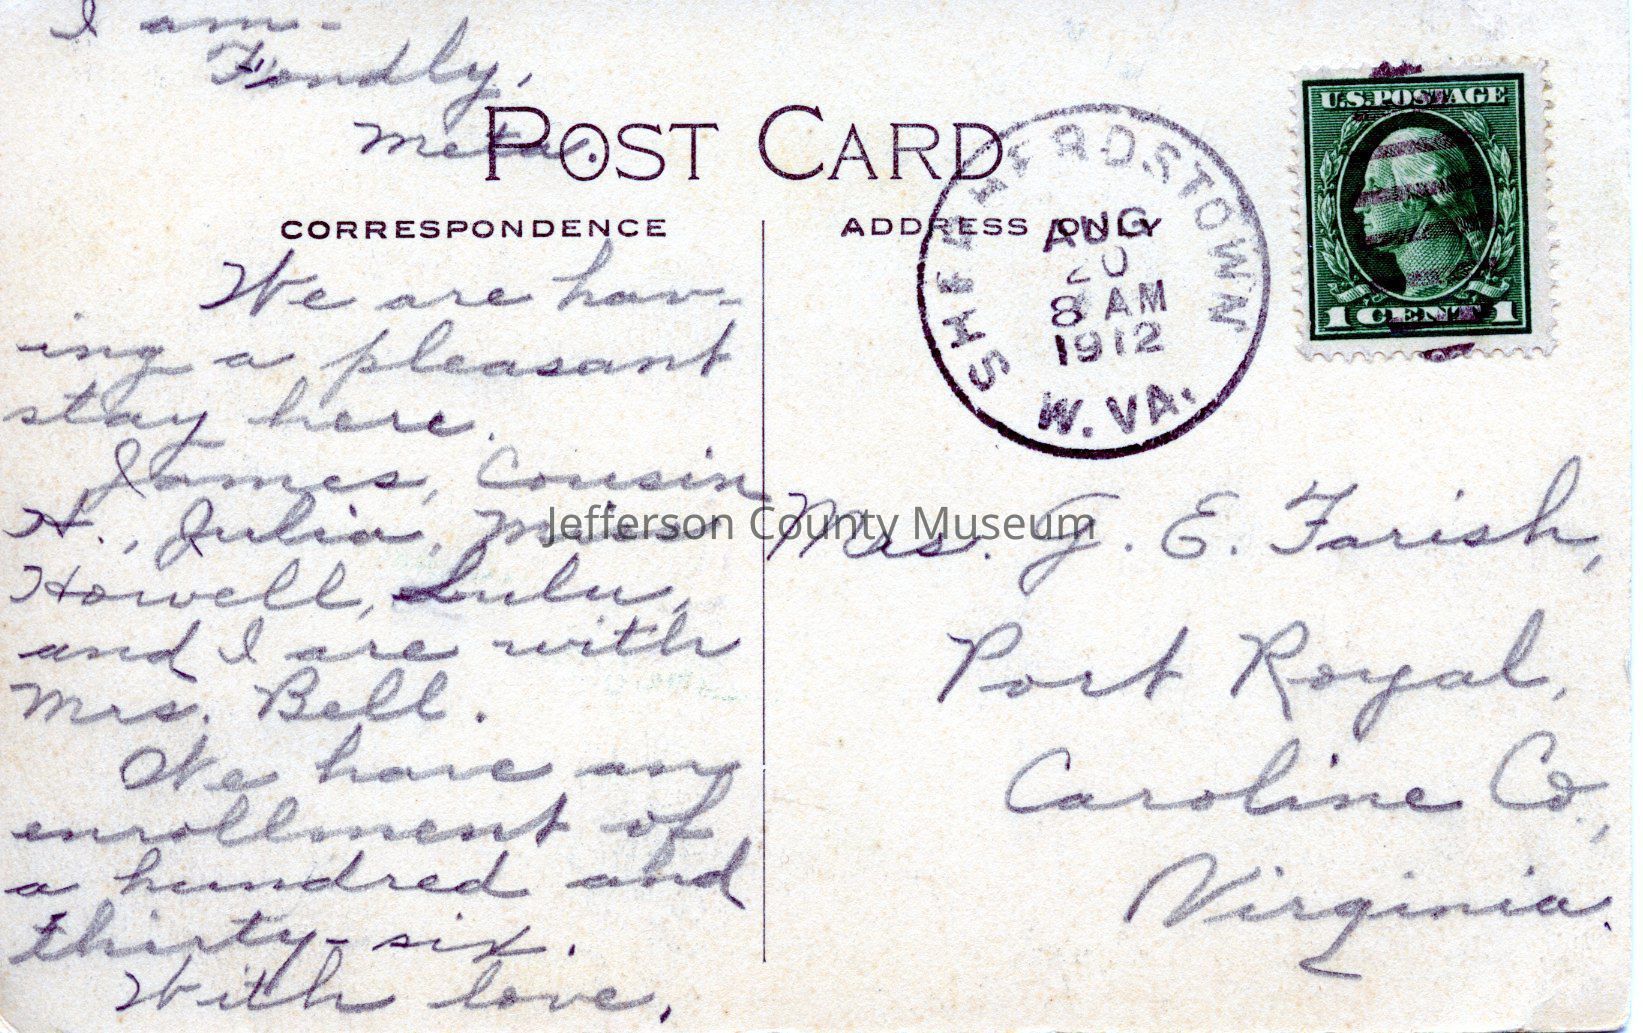 I am-
Fondly,
Meta.
POST CARD
CORRESPONDENCE
ADDRESS ONLY
SHEPHERDSTOWN
AUG
20
8 AM
1912
W. VA.
U.S. POSTAGE
1 CENT 1
We are hav-
ing a pleasant
stay here.
James, Cousin
A., Julia, Miss
Howell, Lulu,
and I are with
Mrs. Bell.
We have an
enrollment of
a hundred and
thirty-six.
With love,
Mrs. J. E. Farish,
Port Royal,
Caroline Co.,
Virginia.
Jefferson County Museum